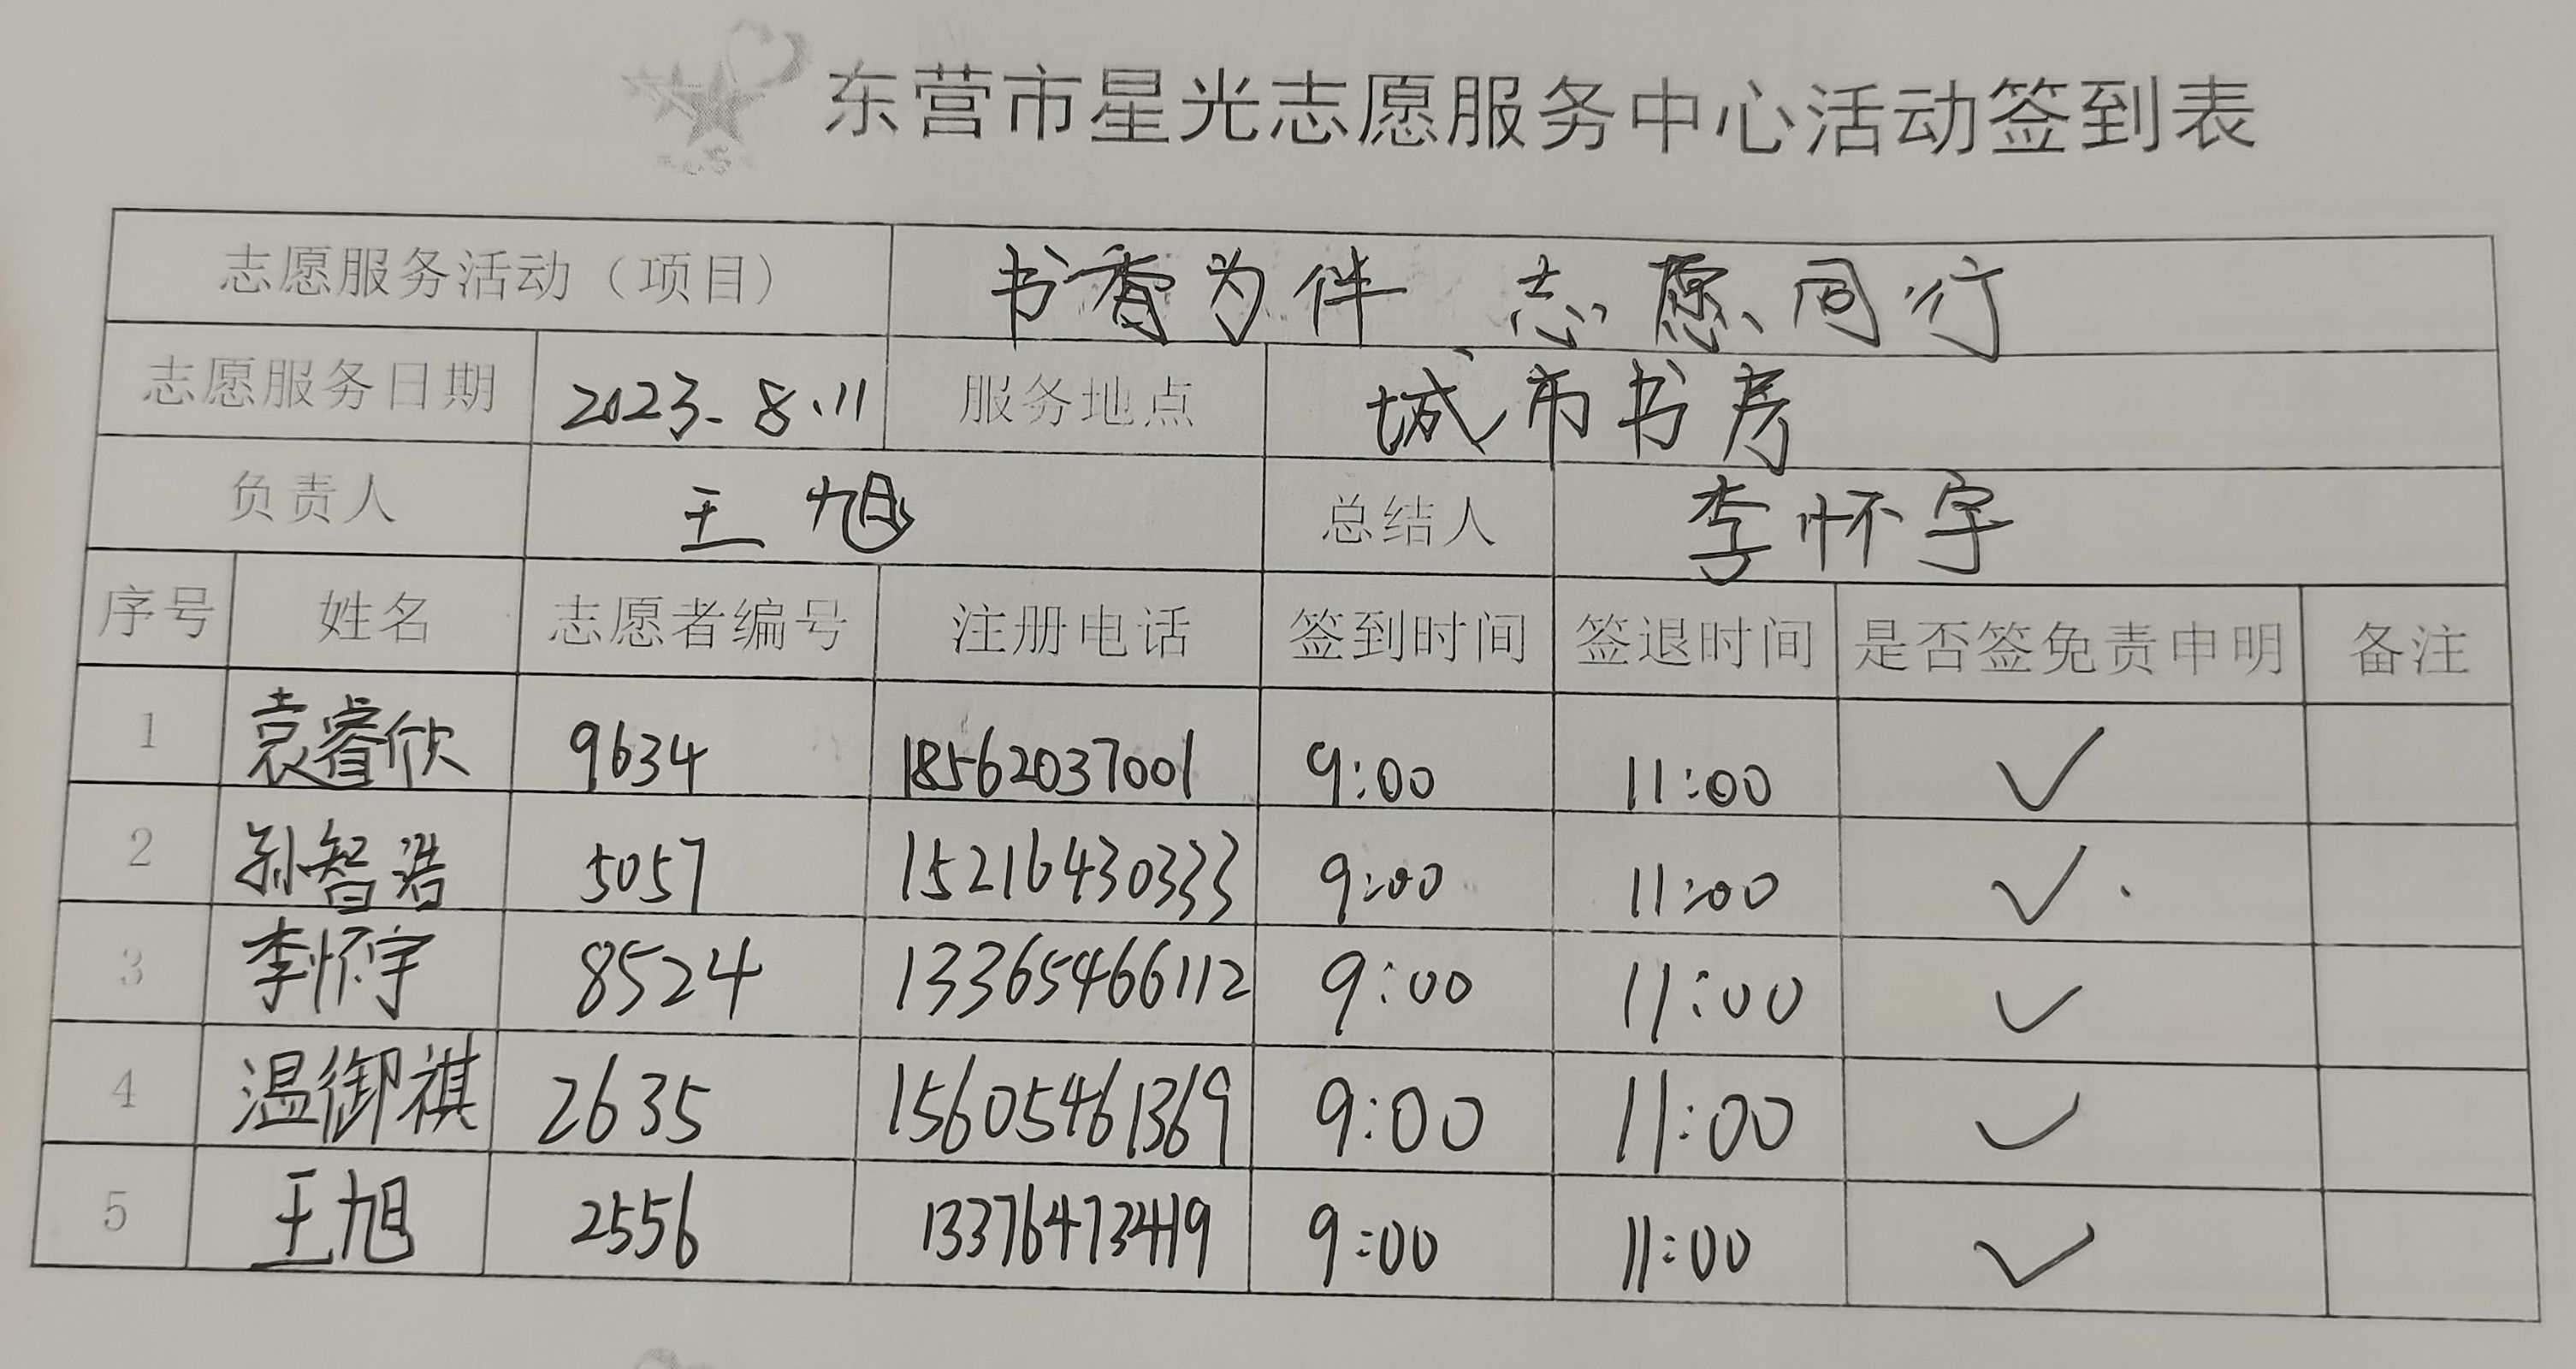 东营市星光志愿服务中心活动签到表
志愿服务活动（项目） 书香为伴 志愿同行
志愿服务日期 2023.8.11 服务地点 城市书房
负责人 王旭 总结人 李怀宇
序号 姓名 志愿者编号 注册电话 签到时间 签退时间 是否签免责申明 备注
1 袁睿欣 9634 18562037001 9:00 11:00 ✓
2 孙智浩 5057 15216430333 9:00 11:00 ✓
3 李怀宇 8524 13365466112 9:00 11:00 ✓
4 温御祺 2635 15605461369 9:00 11:00 ✓
5 王旭 2556 13376473419 9:00 11:00 ✓